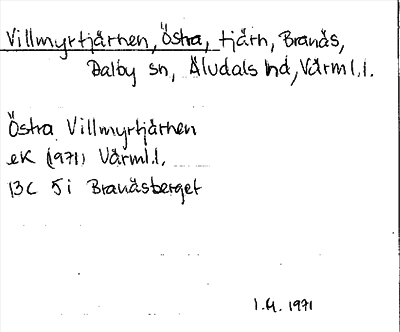 Villmyrtjärnen, Östra, tjärn, Branäs,
Dalby sn, Älvdals hd, Värml.l.
Östra Villmyrtjärnen
eK (1971) Värml.l.
13C 5i Branäsberget
1971